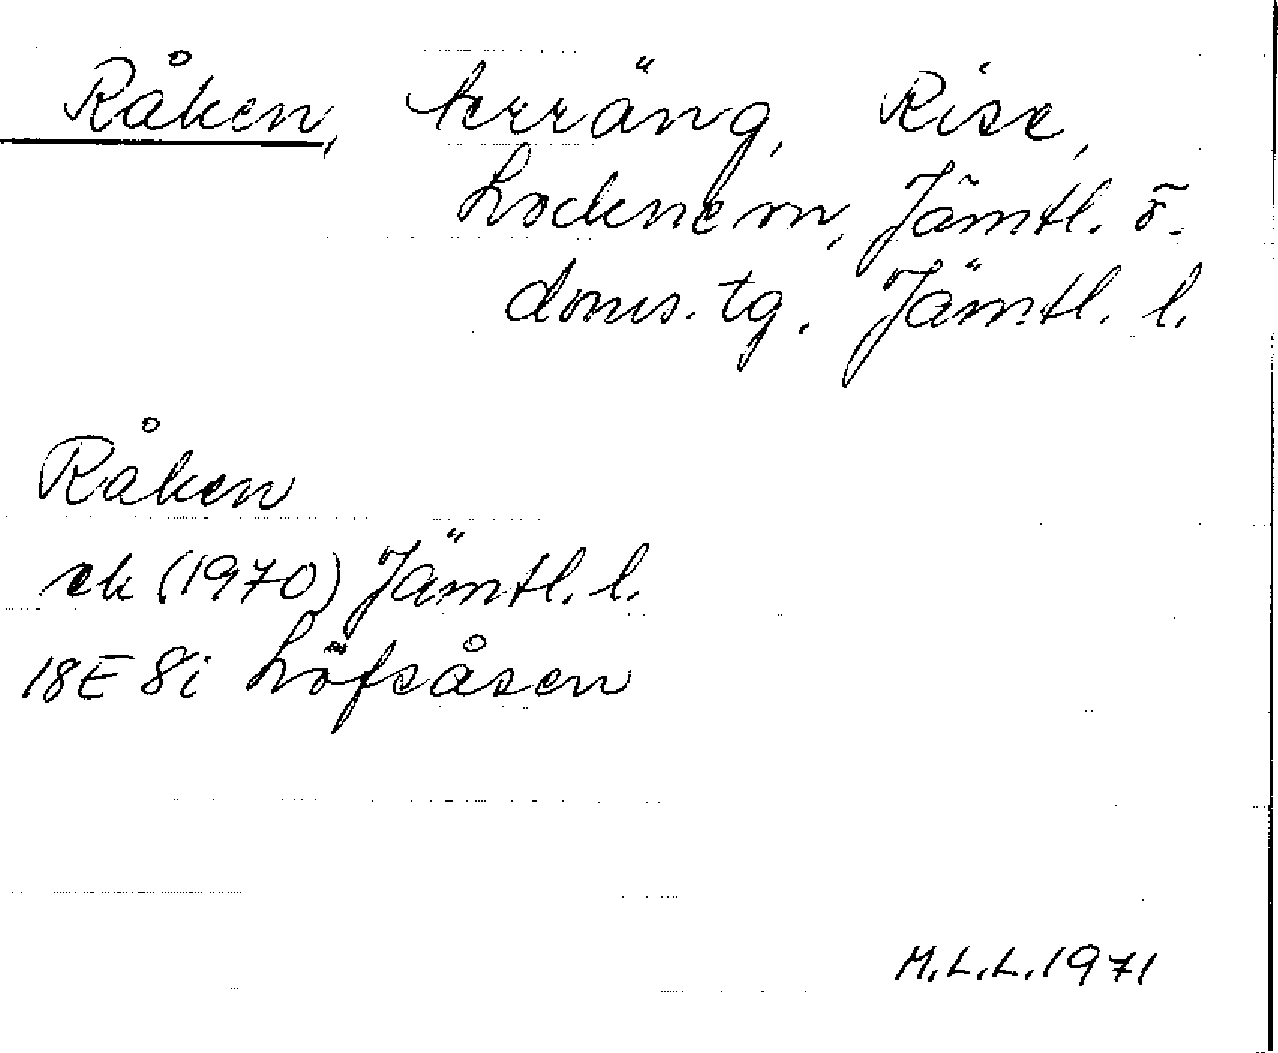 Råken, terräng, Rise,
Lockne sn, Jämtl. ö.
doms. tg. Jämtl. l.
Råken
ek (1970) Jämtl. l.
18E 8i Löfsåsen
M.L.L. 1971